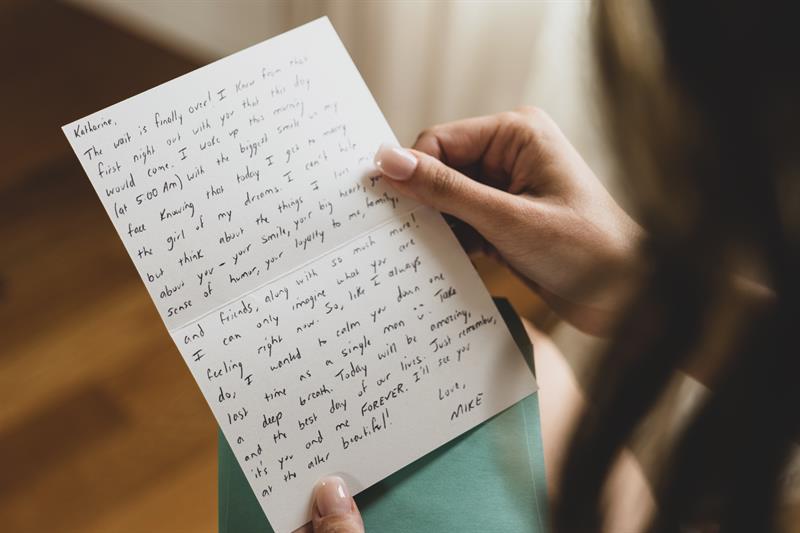 Katharine,
The wait is finally over! I knew from that
first night out with you that this day
would come. I woke up this morning
(at 5:00 AM) with the biggest smile on my
face knowing that today I get to marry
the girl of my dreams. I can't help
but think about the things I love
about you - your smile, your big heart, your
sense of humor, your loyalty to me, family,
and friends, along with so much more!
I can only imagine what you are
feeling right now. So, like I always
do, I wanted to calm you down one
last time as a single man :) Take
a deep breath. Today will be amazing,
and the best day of our lives. Just remember,
it's you and me FOREVER. I'll see you
at the alter beautiful!
Love,
MIKE